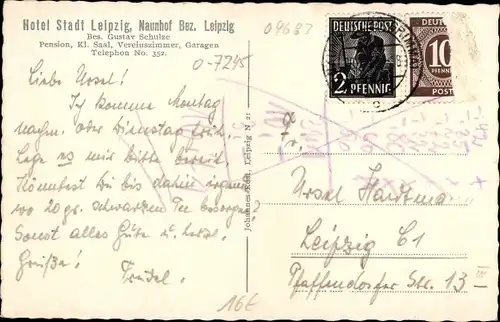 Hotel Stadt Leipzig, Naunhof Bez. Leipzig
Bes. Gustav Schulze
Pension, Kl. Saal, Vereinszimmer, Garagen
Telephon No. 352.
04683
0-7245
Liebe Ursel!
Ich komme Montag
nachm. oder Dienstag früh.
Lege es mir bitte bereit.
Könntest Du bis dahin irgend-
wo 20 gr. schwarzen Tee besorgen?
Sonst alles Gute u. herzl.
Grüße!
Trudel.
16€
Leipzig N 21
DEUTSCHE POST
2 PFENNIG
DEUTSCHE
10
PFENNIG
POST
Ursel Hardtmann
Leipzig C1
Pfaffendorfer Str. 13 III